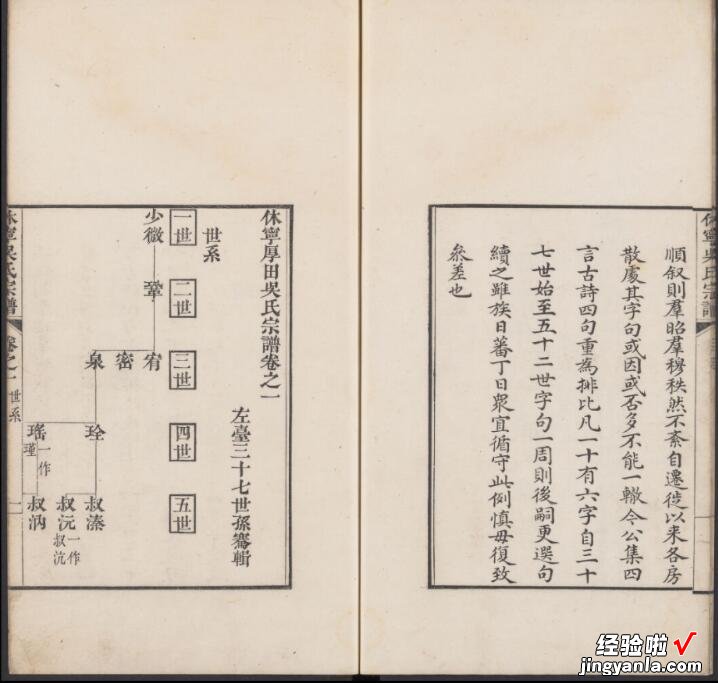 順叙則羣昭羣穆秩然不紊自遷徙以来各房
散處其字句或因或否多不能一轍今公集四
言古詩四句重為排比凡一十有六字自三十
七世始至五十二世字句一周則後嗣更選句
續之雖族日蕃丁日衆宜循守此例慎毋復致
參差也
休寧厚田吳氏宗譜卷之一
左臺三十七世孫騫輯
世系
一世
二世
三世
四世
五世
少微
鞏
宥
密
泉
珍
叔溱
叔沅
一作
叔沆
瑤
一作
瑾
叔汭
休寧吳氏宗譜
卷之一
世系
一
休寧吳氏宗譜
经验啦√
jingyanla.com